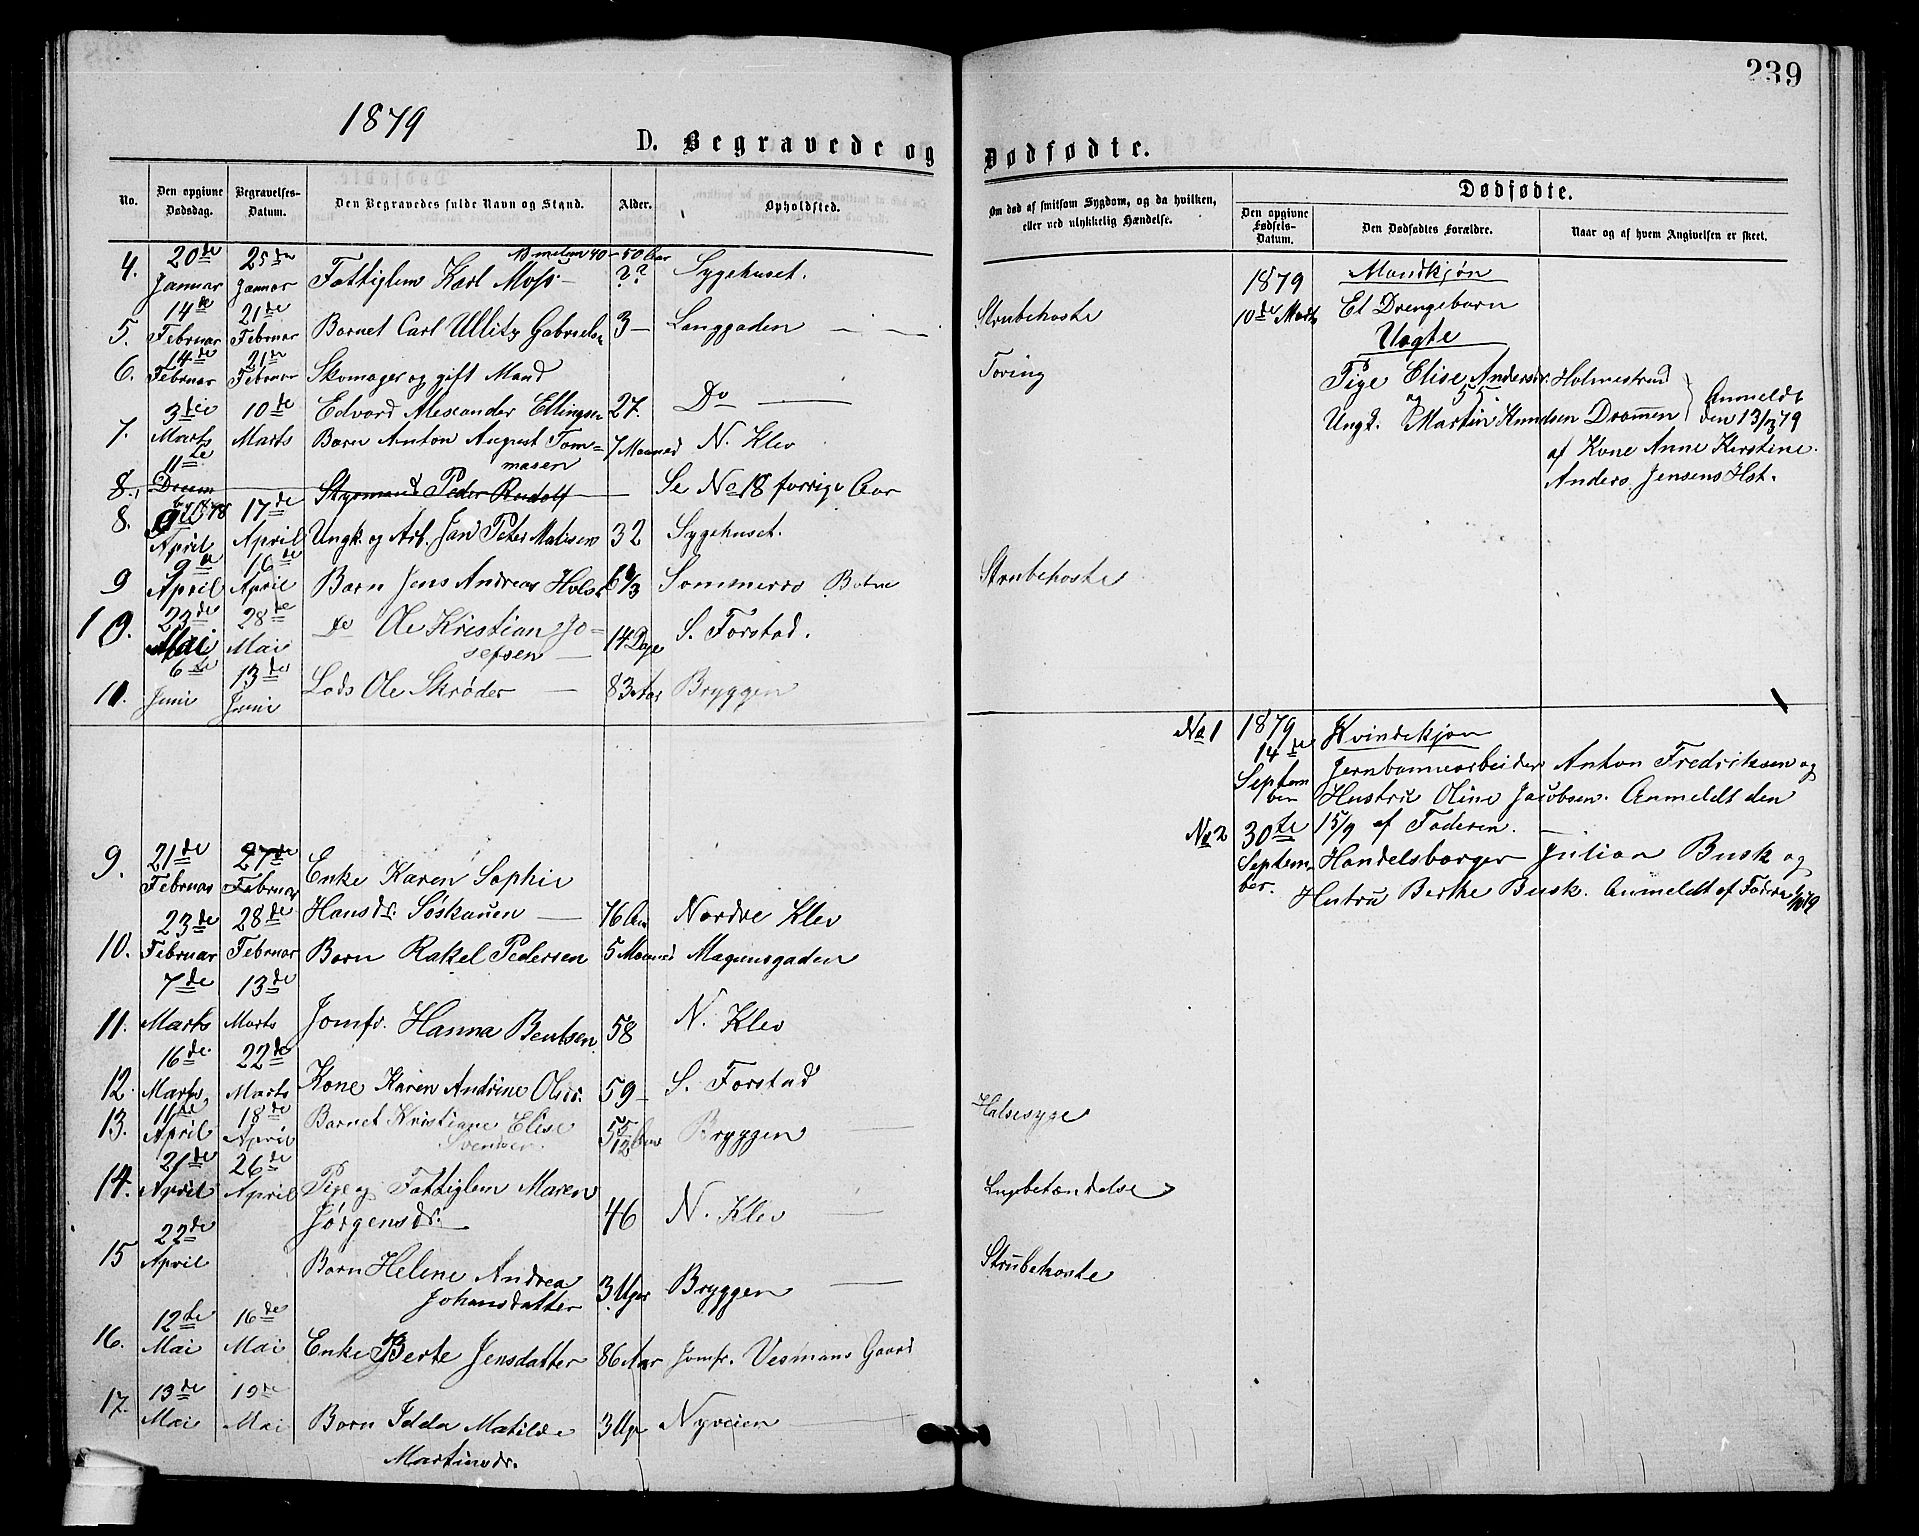 239
1879
D. Begravede og Dødfødte.
No. Den opgivne Dødsdag. Begravelses-Datum. Den Begravedes fulde Navn og Stand. Alder. Opholdsted.
Om død af smitsom Sygdom, og da hvilken, eller ved ulykkelig Hændelse.
Dødfødte.
Den opgivne Fødsels-Datum. Den Dødfødtes Forældre. Naar og af hvem Angivelsen er skeet.
4. 20de Januar 25de Januar Fattiglem Karl Moss — melem 40–50 Aar ?? Sygehuset.
5. 14de Februar 21de Februar Barnet Carl Ullitz Gabrielsen 3 — Langgaden — Strubehoste
6. 14de Februar 21de Februar Skomager og gift Mand
Edvard Alexander Ellingsen 27. Do — Tæring
7. 3die Marts 10de Marts Barn Anton August Tommasen 7 Maaned N. Klev
8. 11te Decem 1878 Styrmand Peder Rudolf — Se No 18 forrige Aar
8. April 17de April Ungk. og Arb. Jan Peter Matisen 32 Sygehuset.
9 9de April 16de April Barn Jens Andreas Holst 6 1/3 Sommerro Botne Strubehoste
10. 23de Mai 28de Mai do Ole Kristian Josefsen — 14 Dage S. Forstad.
11. 6te Juni 13de Juni Lods Ole Skrøder — 83 Aar Bryggen
9. 21de Februar 27de Februar Enke Karen Sophie
Hansdr. Søskauen — 76 Aar Nordre Klev
10. 23de Februar 28de Februar Barn Rakel Pedersen 5 Maaned Magnusgaden
11. 7de Marts 13de Marts Jomfr. Hanna Bentsen 58 N. Klev
12. 16de Marts 22de Marts Kone Karen Andrine Olsdr. 59 — S. Forstad
13. 11te April 18de April Barnet Kristiane Elise 5 5/12 Aar Bryggen — Halsesyge
14. 21de April 26de April Pige og Fattiglem Maren
Jørgensdr. — 46 N. Klev — Lugbetændelse
15 22de April Barn Helene Andrea
Johansdatter 3 Uger Bryggen — Strubehoste
16. 12te Mai 16de Mai Enke Berte Jensdatter 86 Aar Jomfr. Vesmans Gaard
17. 13de Mai 19de Mai Barn Idda Matilde 3 Uger Nyveien
Martinsdr.
1879 Mandkjøn
10de Marts Et Drengebarn
Uægte
Pige Elise Andersdr. Holmestrand
og
Ungk. Martin Knudsen Drammen
Anmeldt den 13/3 79
af Kone Anne Kirstine
Anders Jensens Hst.
No 1 1879 Kvindekjøn
14de September Jernbanearbeider Anton Fredriksen og
Hustru Oline Jacobsen. Anmeldt den
15/9 af Faderen. —
No 2 30te September. Handelsborger Julian Busk og
Hustru Berthe Busk. Anmeldt af Faderen